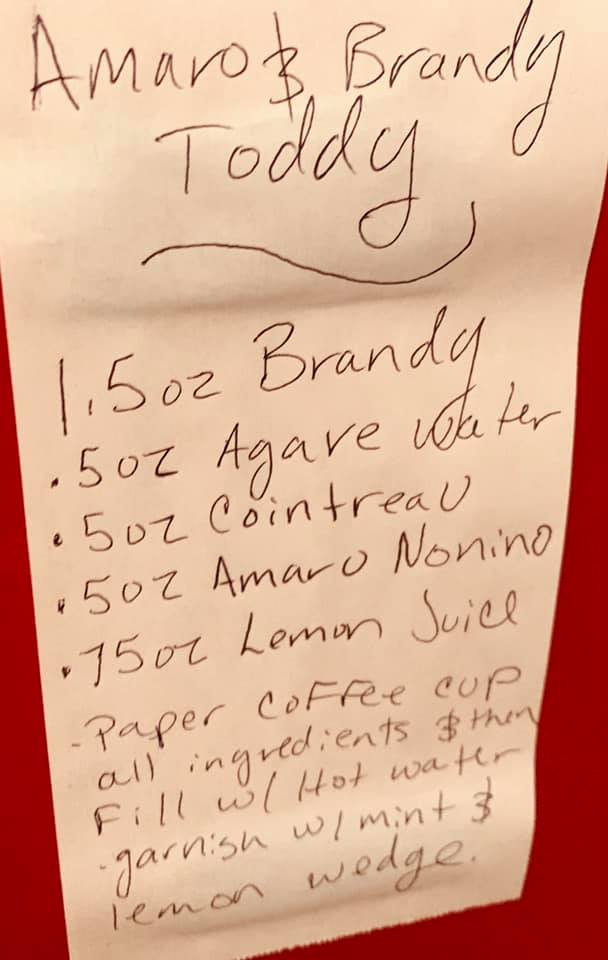 Amaro & Brandy
Toddy
1.5oz Brandy
.5oz Agave water
.5oz Cointreau
.5oz Amaro Nonino
.75oz Lemon Juice
-Paper coffee cup
all ingredients & then
Fill w/ Hot water
-garnish w/ mint &
lemon wedge.